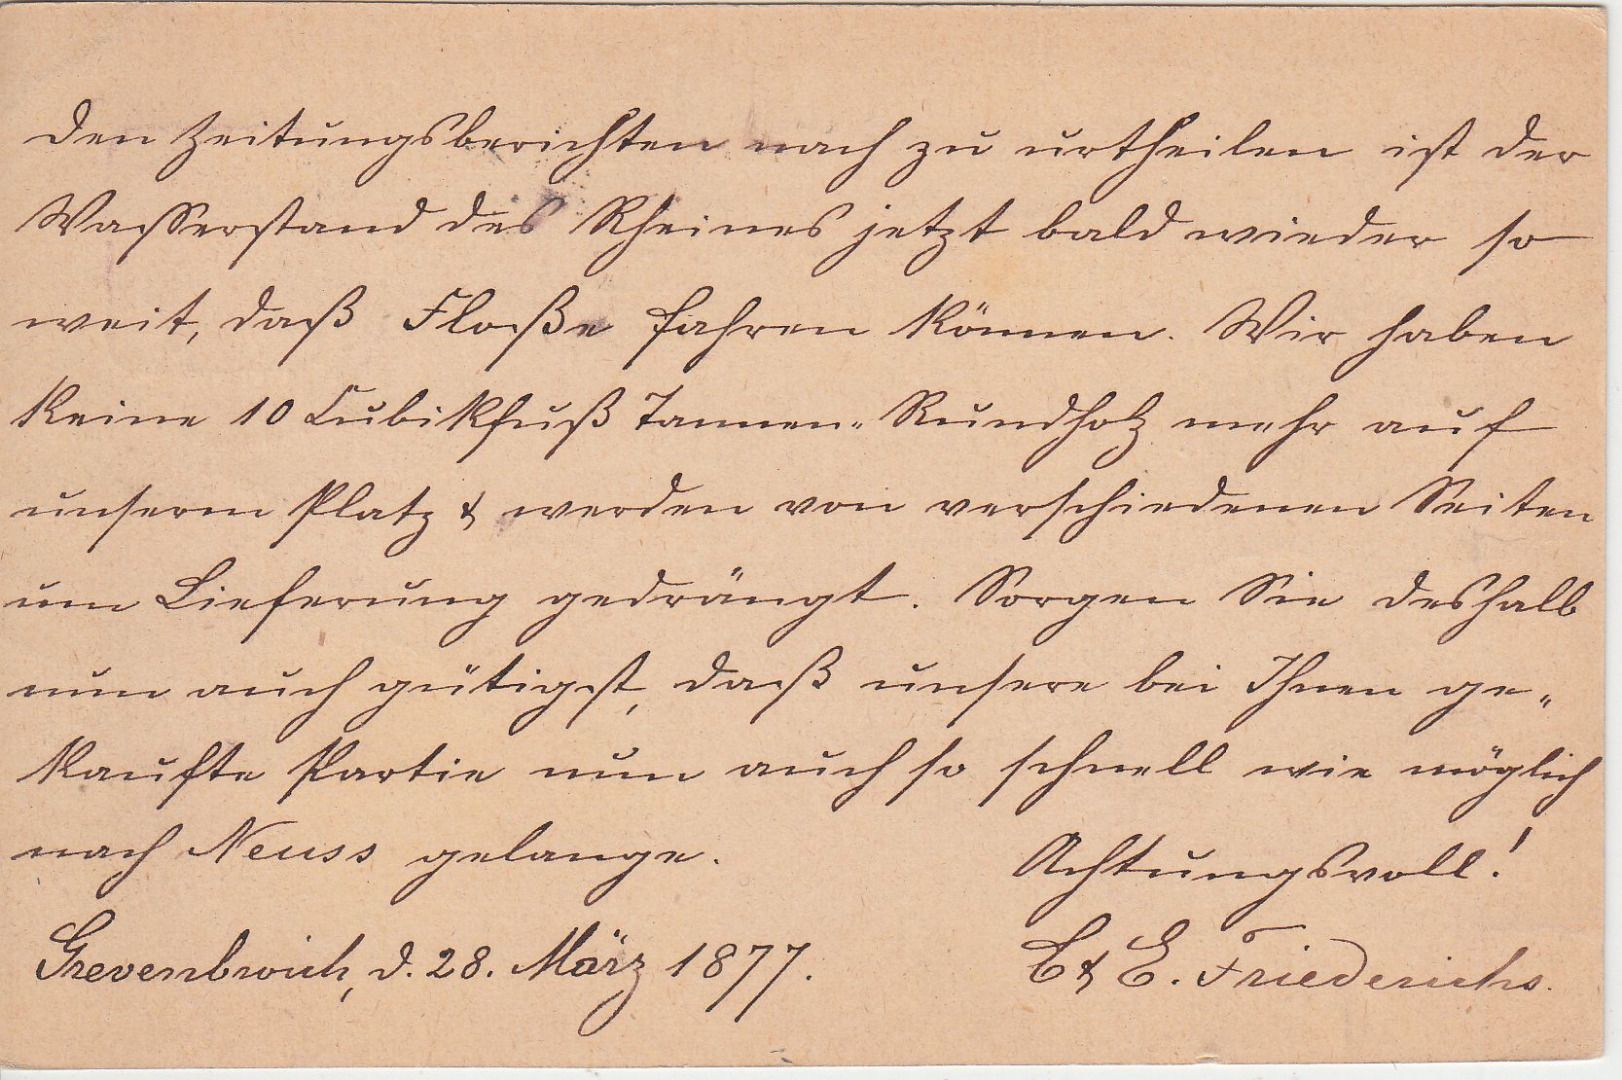 Den Zeitungsberichten nach zu urtheilen ist der
Wasserstand des Rheines jetzt bald wieder so
weit, daß Floße fahren können. Wir haben
keine 10 Cubikfuß Tannen-Rundholz mehr auf
unserm Platz & werden von verschiedenen Seiten
um Lieferung gedrängt. Sorgen Sie deshalb
nun auch gütigst, daß unsere bei Ihnen ge-
kaufte Partie nun auch so schnell wie möglich
nach Neuss gelange.
Achtungsvoll!
Grevenbroich, d. 28. März 1877.
C & E. Friederichs.